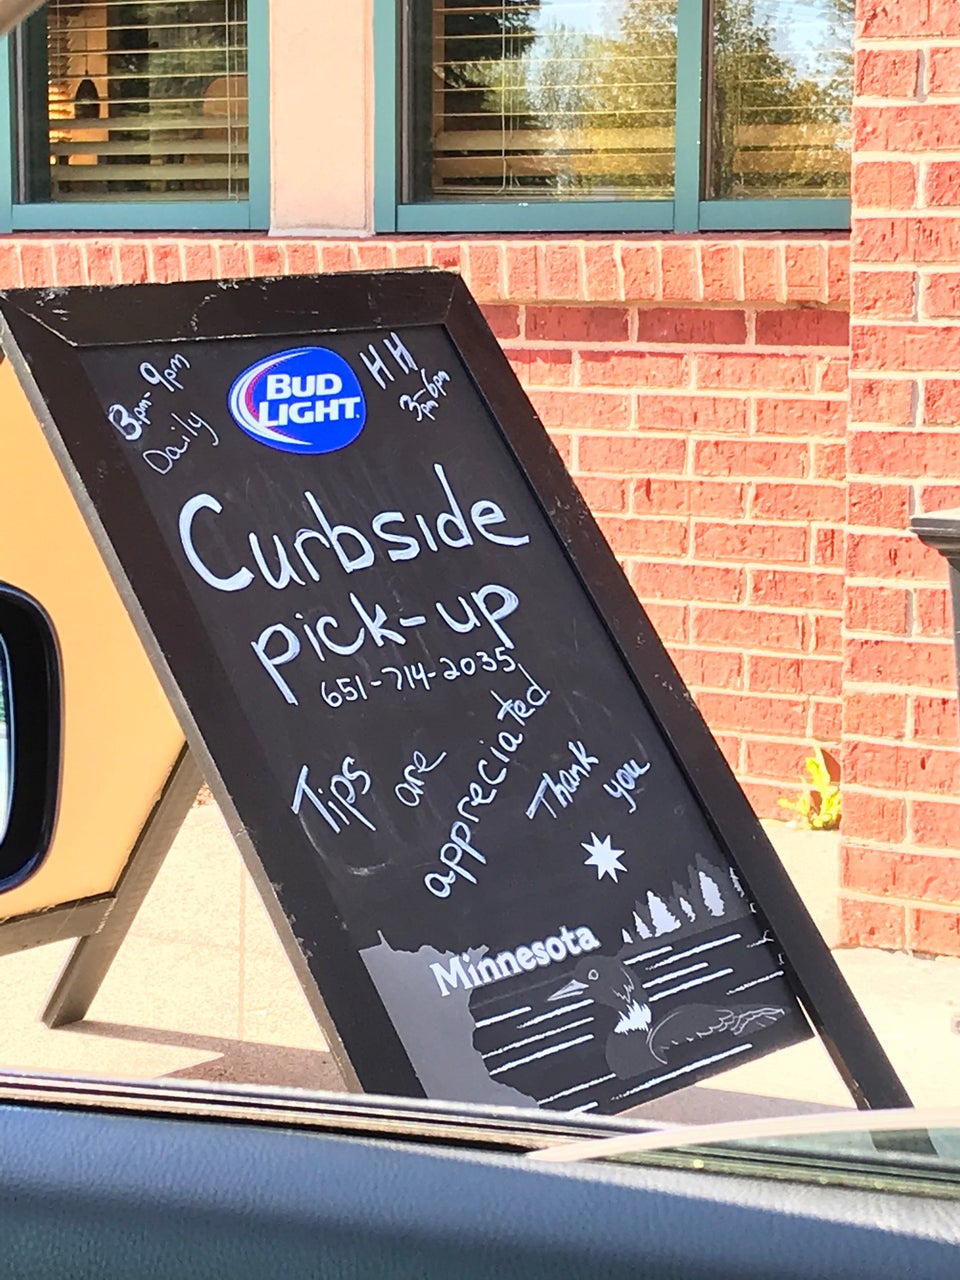 3pm-9pm
Daily
BUD
LIGHT
HH
3pm-6pm
Curbside
pick-up
651-714-2035
Tips are appreciated
Thank you
Minnesota